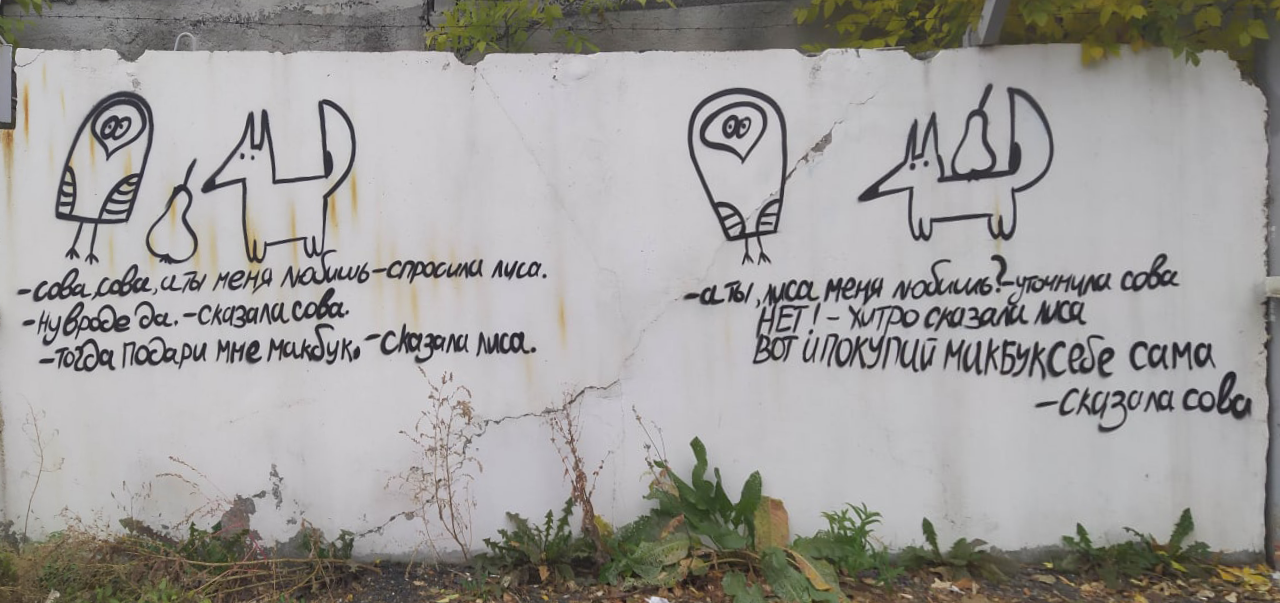 -сова, сова, а ты меня любишь-спросила лиса.
-ну вроде да. -сказала сова.
-тогда подари мне макбук. -сказала лиса.
-а ты, лиса меня любишь?-уточнила сова
НЕТ! - хитро сказала лиса
ВОТ И ПОКУПИЙ МАКБУК себе сама
-сказала сова